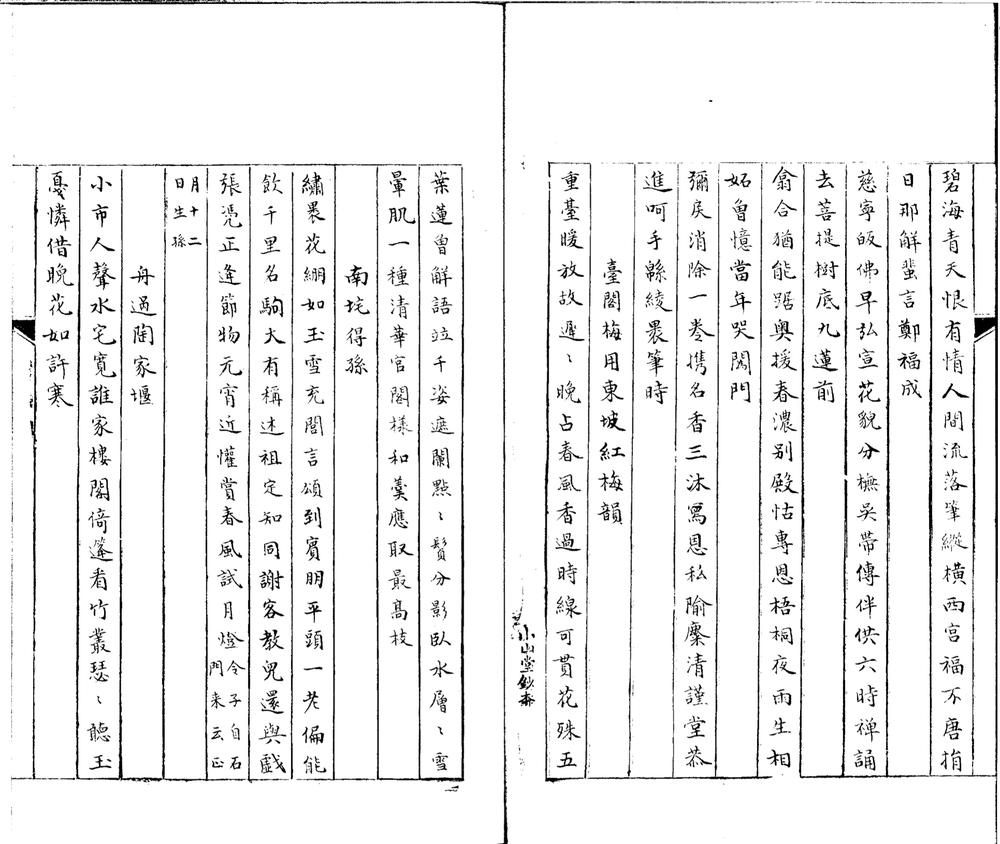 碧海青天恨有情人間流落筆縱橫西宮福不唐捐
日那解蜚言鄭福成
慈寧皈佛早弘宣花貌分橅吳帶傳伴供六時禅誦
去菩提樹底九蓮前
翕合猶能踞奧援春濃别殿怙專恩梧桐夜雨生相
妬魯憶當年哭閤門
彌戾消除一卷携名香三沐寫恩私隃麋清謹堂恭
進呵手緜綾曇筆時
臺閣梅用東坡紅梅韻
重臺暖放故遲〻晚占春風香過時線可貫花殊五
小山堂鈔本
葉蓮曾解語竝千姿遮闌點〻鬢分影臥水層〻雪
暈肌一種清華宮閣樣和羹應取最高枝
南垞得孫
繡褁花綳如玉雪充閭言頌到賓朋平頭一老偏能
飲千里名駒大有稱述祖定知同謝客教兒還與戲
張凭正逢節物元宵近懽賞春風試月燈令子自石門来云正
月十二日生孫
舟過陶家堰
小市人聲水宅寬誰家樓閣倚篷看竹叢瑟〻聽玉
戞憐借晚花如許寒